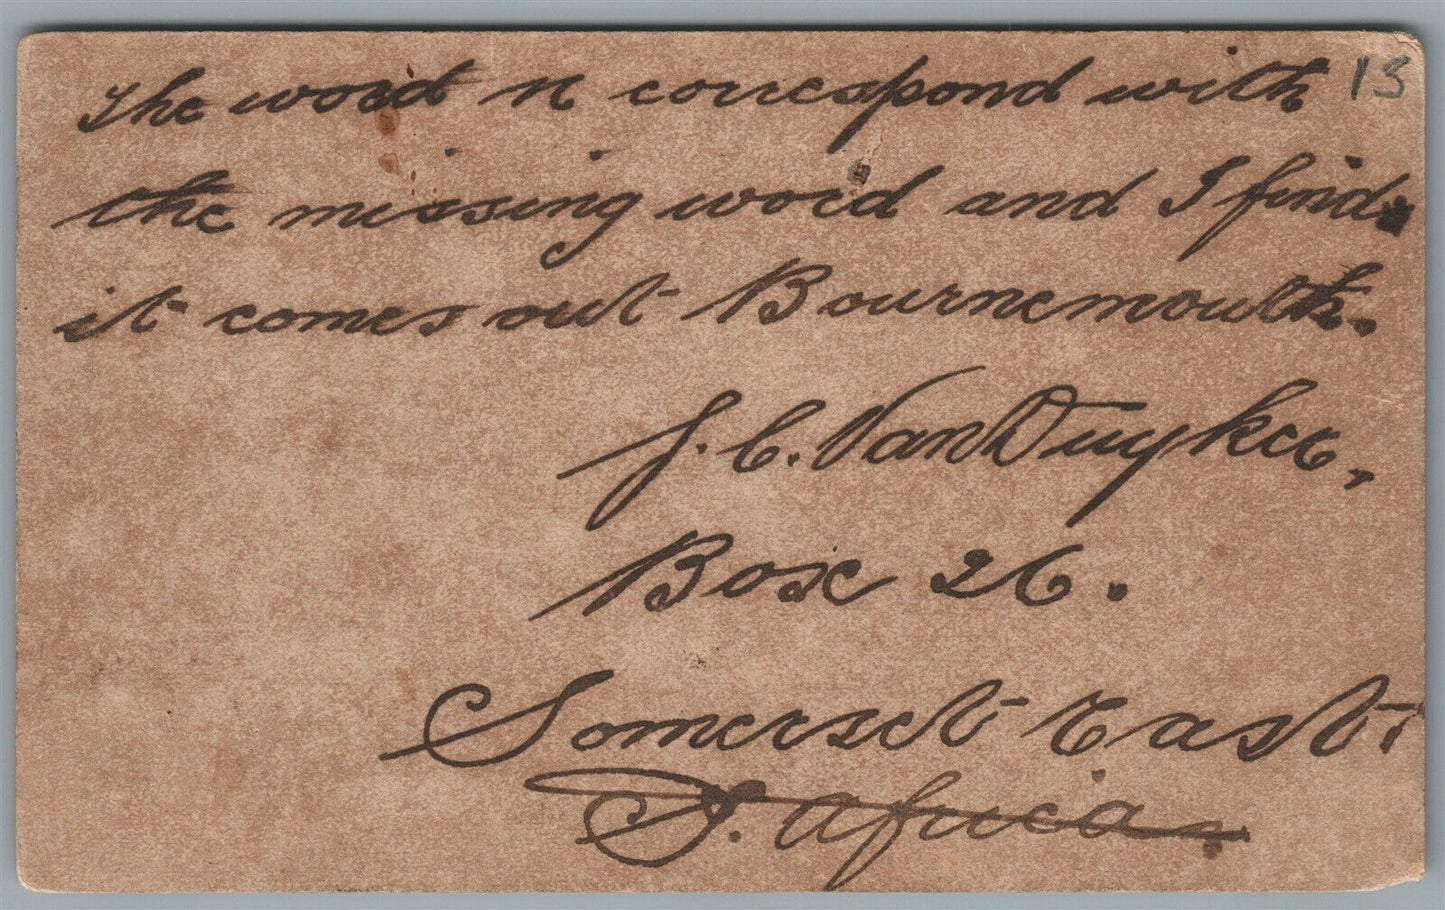 The word n correspond with 13
the missing word and I find.
it comes out Bournemouth.
J. C. Van Duyker,
Box 26.
Somerset East.
S. Africa.